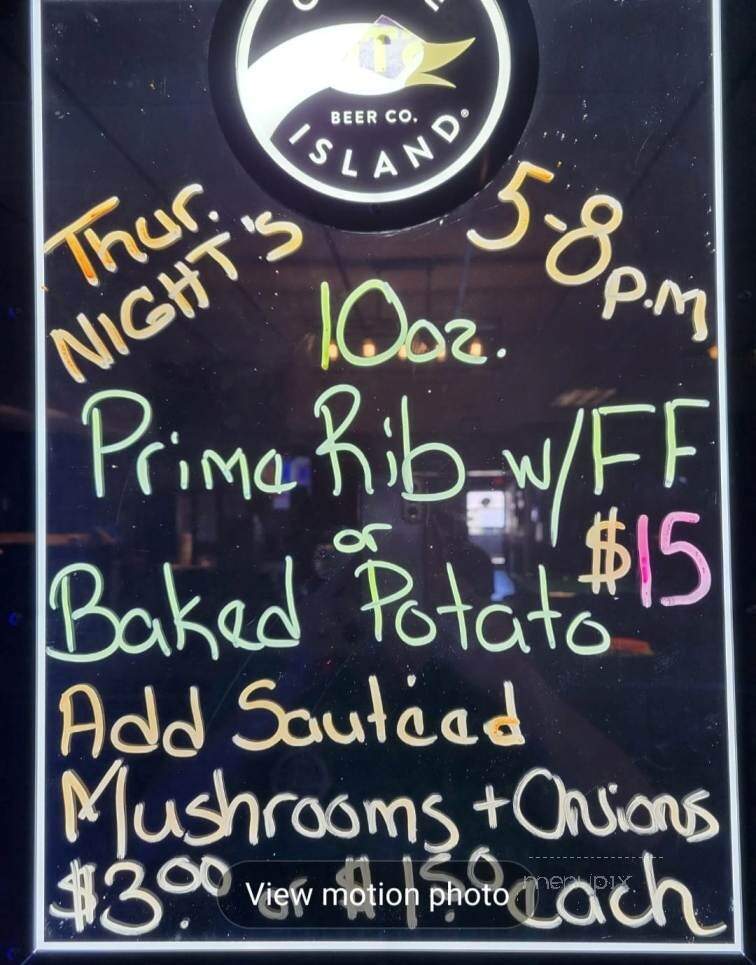 BEER CO.
ISLAND®
Thur. 5-8
NIGHT'S p.m
10oz.
Prime Rib w/FF
or $15
Baked Potato
Add Sautéed
Mushrooms + Onions
$3.00 or $1.50 each
View motion photo
menupix